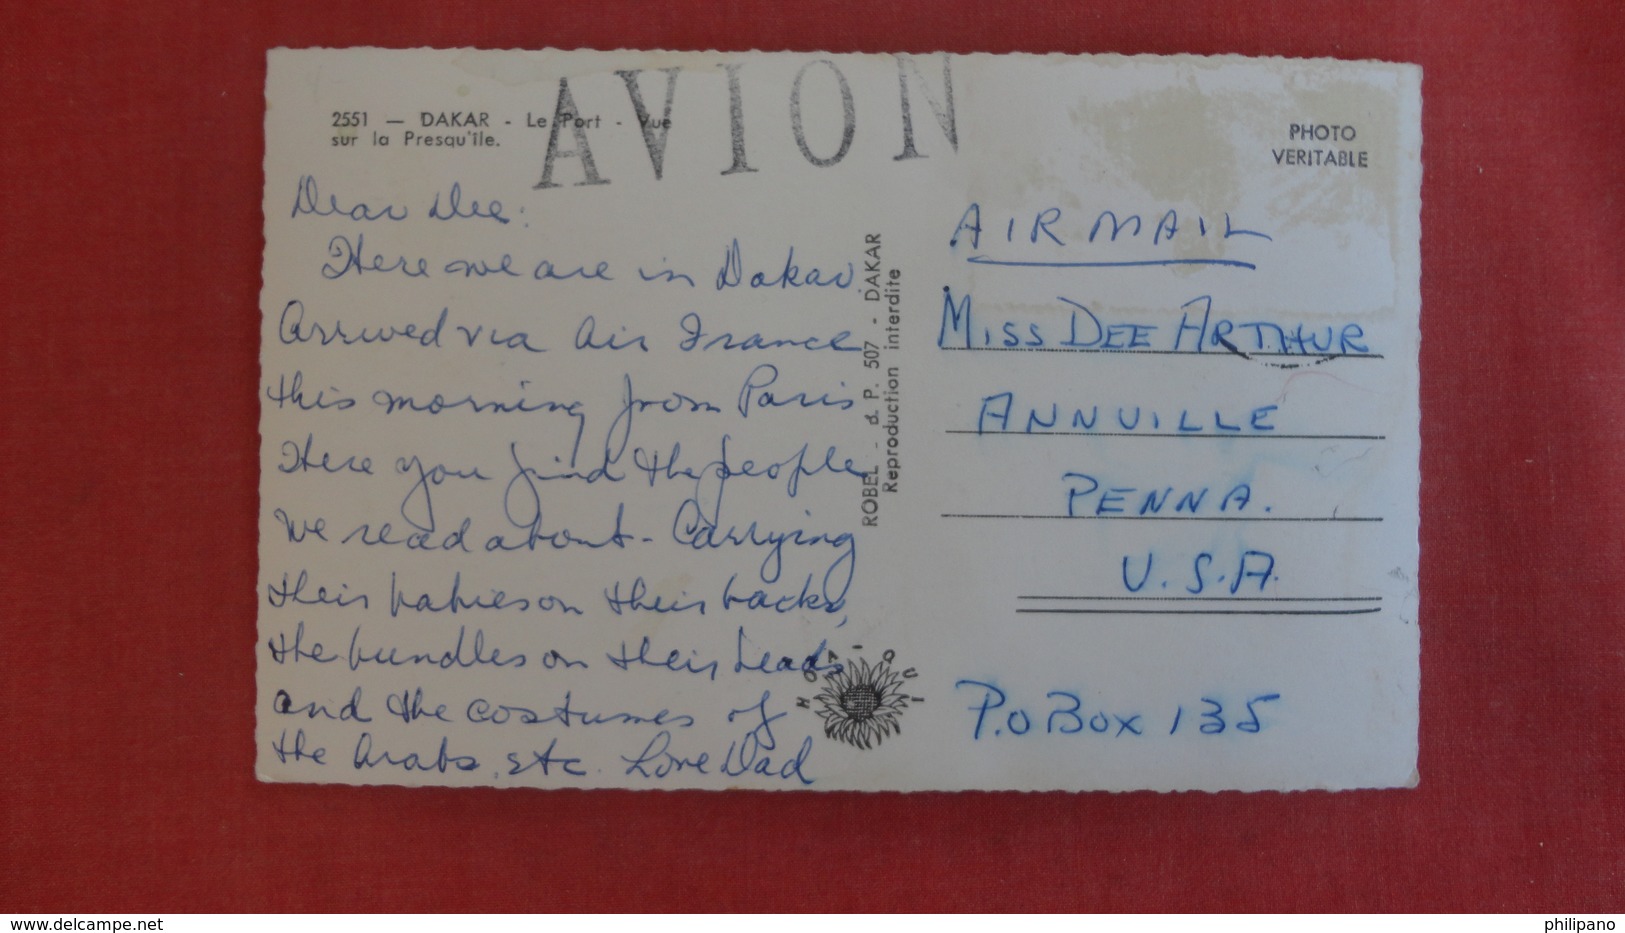 AVION
2551 — DAKAR - Le Port - Vue
sur la Presqu'île.
PHOTO
VERITABLE
Dear Dee:
Here we are in Dakar.
Arrived via Air France
this morning from Paris
Here you find the people
we read about - Carrying
their babies on their backs,
the bundles on their heads
and the costumes of
the Arabs. etc. Love Dad
ROBEL - B. P. 507 - DAKAR
Reproduction interdite
HOA-QUI
AIR MAIL
MISS DEE ARTHUR
ANNVILLE
PENNA.
U.S.A.
P.O Box 135
www.delcampe.net
philipano